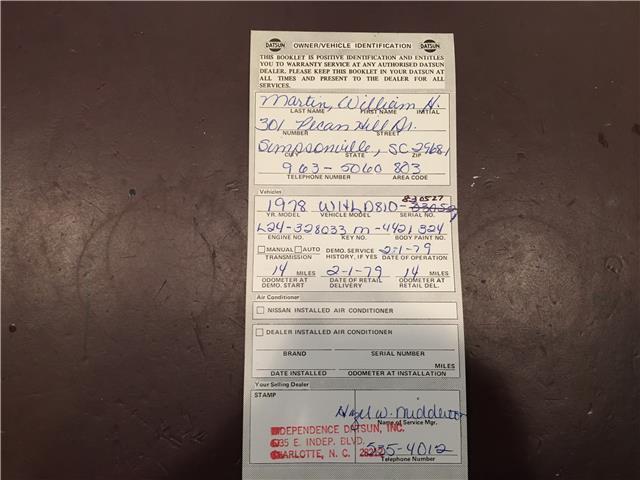 DATSUN OWNER/VEHICLE IDENTIFICATION DATSUN
THIS BOOKLET IS POSITIVE IDENTIFICATION AND ENTITLES
YOU TO WARRANTY SERVICE AT ANY AUTHORISED DATSUN
DEALER. PLEASE KEEP THIS BOOKLET IN YOUR DATSUN AT
ALL TIMES AND PRESENT TO THE DEALER FOR ALL
SERVICES.
Martin, William H.
LAST NAME FIRST NAME INITIAL
301 Pecan Hill Dr.
NUMBER STREET
Simpsonville, SC 29681
CITY STATE ZIP
963-5060 803
TELEPHONE NUMBER AREA CODE
Vehicles
830527
1978 WHLD810-
YR. MODEL VEHICLE MODEL SERIAL NO.
L24-328033 M-4421 324
ENGINE NO. KEY NO. BODY PAINT NO.
MANUAL AUTO DEMO. SERVICE 2-1-79
TRANSMISSION HISTORY, IF YES DATE OF OPERATION
14 MILES 2-1-79 14 MILES
ODOMETER AT DATE OF RETAIL ODOMETER AT
DEMO. START DELIVERY RETAIL DEL.
Air Conditioner
NISSAN INSTALLED AIR CONDITIONER
DEALER INSTALLED AIR CONDITIONER
BRAND SERIAL NUMBER
MILES
DATE INSTALLED ODOMETER AT INSTALLATION
Your Selling Dealer
STAMP
W. Middleton
Name of Service Mgr.
INDEPENDENCE DATSUN, INC.
6735 E. INDEP. BLVD. 535-4012
CHARLOTTE, N. C. 28212 Telephone Number